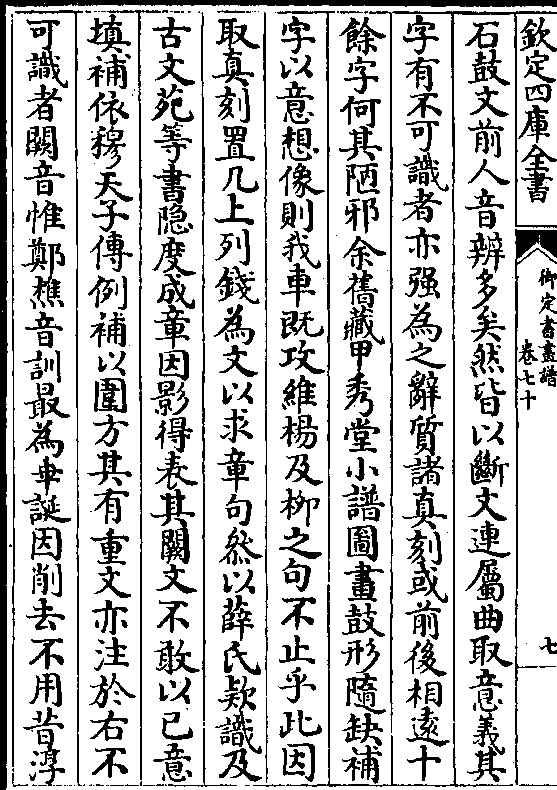 欽定四庫全書
御定書畫譜
卷七十
七
石鼓文前人音辨多矣然皆以斷文連屬曲取意義其
字有不可識者亦强為之辭質諸真刻或前後相逺十
餘字何其陋邪余舊藏甲秀堂小譜圖畫鼓形隨缺補
字以意想像則我車既攻維楊及栁之句不止乎此因
取真刻置几上列錢為文以求章句然以薛氏欵識及
古文苑等書隐度成章因影得表其闕文不敢以已意
填補依穆天子傳例補以圍方其有重文亦注於右不
可識者闕音惟鄭樵音訓最為誕因削去不用昔淳